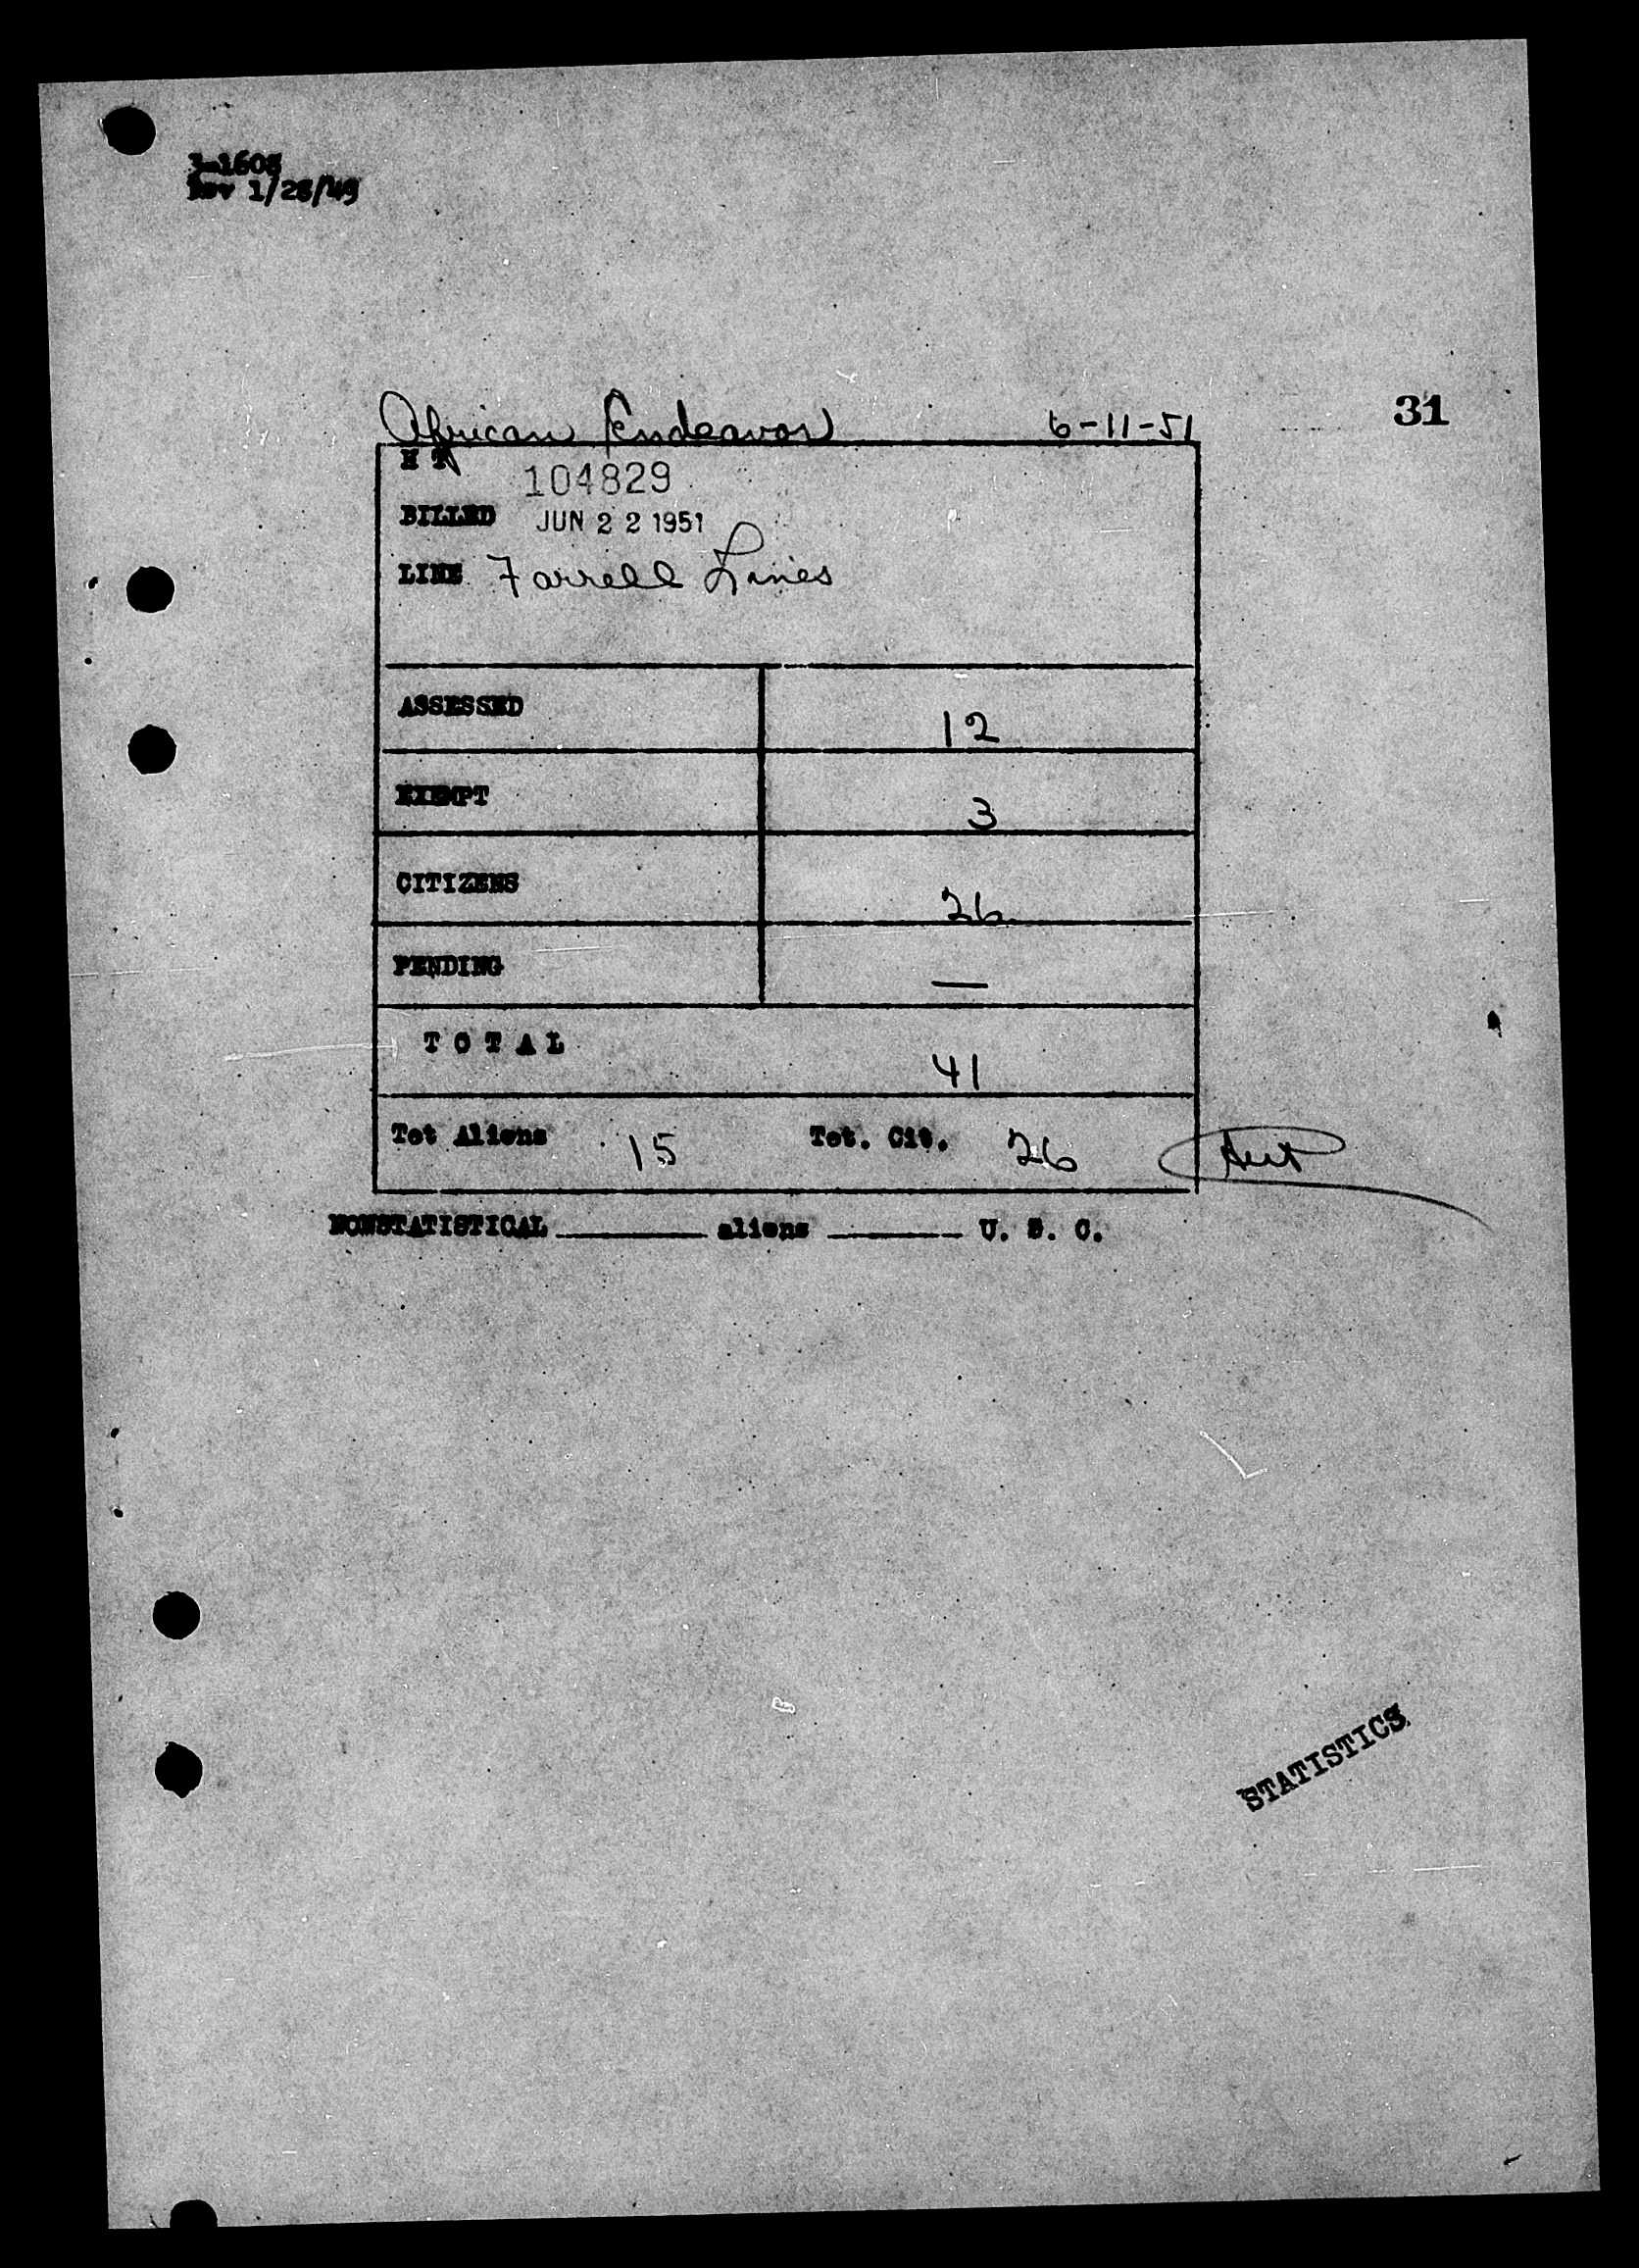 3-1603
Rev 1/28/49
African Endeavor 6-11-51
31
H T
104829
BILLED JUN 22 1951
LINE Farrell Lines
ASSESSED 12
EXEMPT 3
CITIZENS 26
PENDING —
TOTAL 41
Tot Aliens 15 Tot. Cit. 26
NONSTATISTICAL ______ aliens ______ U. S. C.
STATISTICS